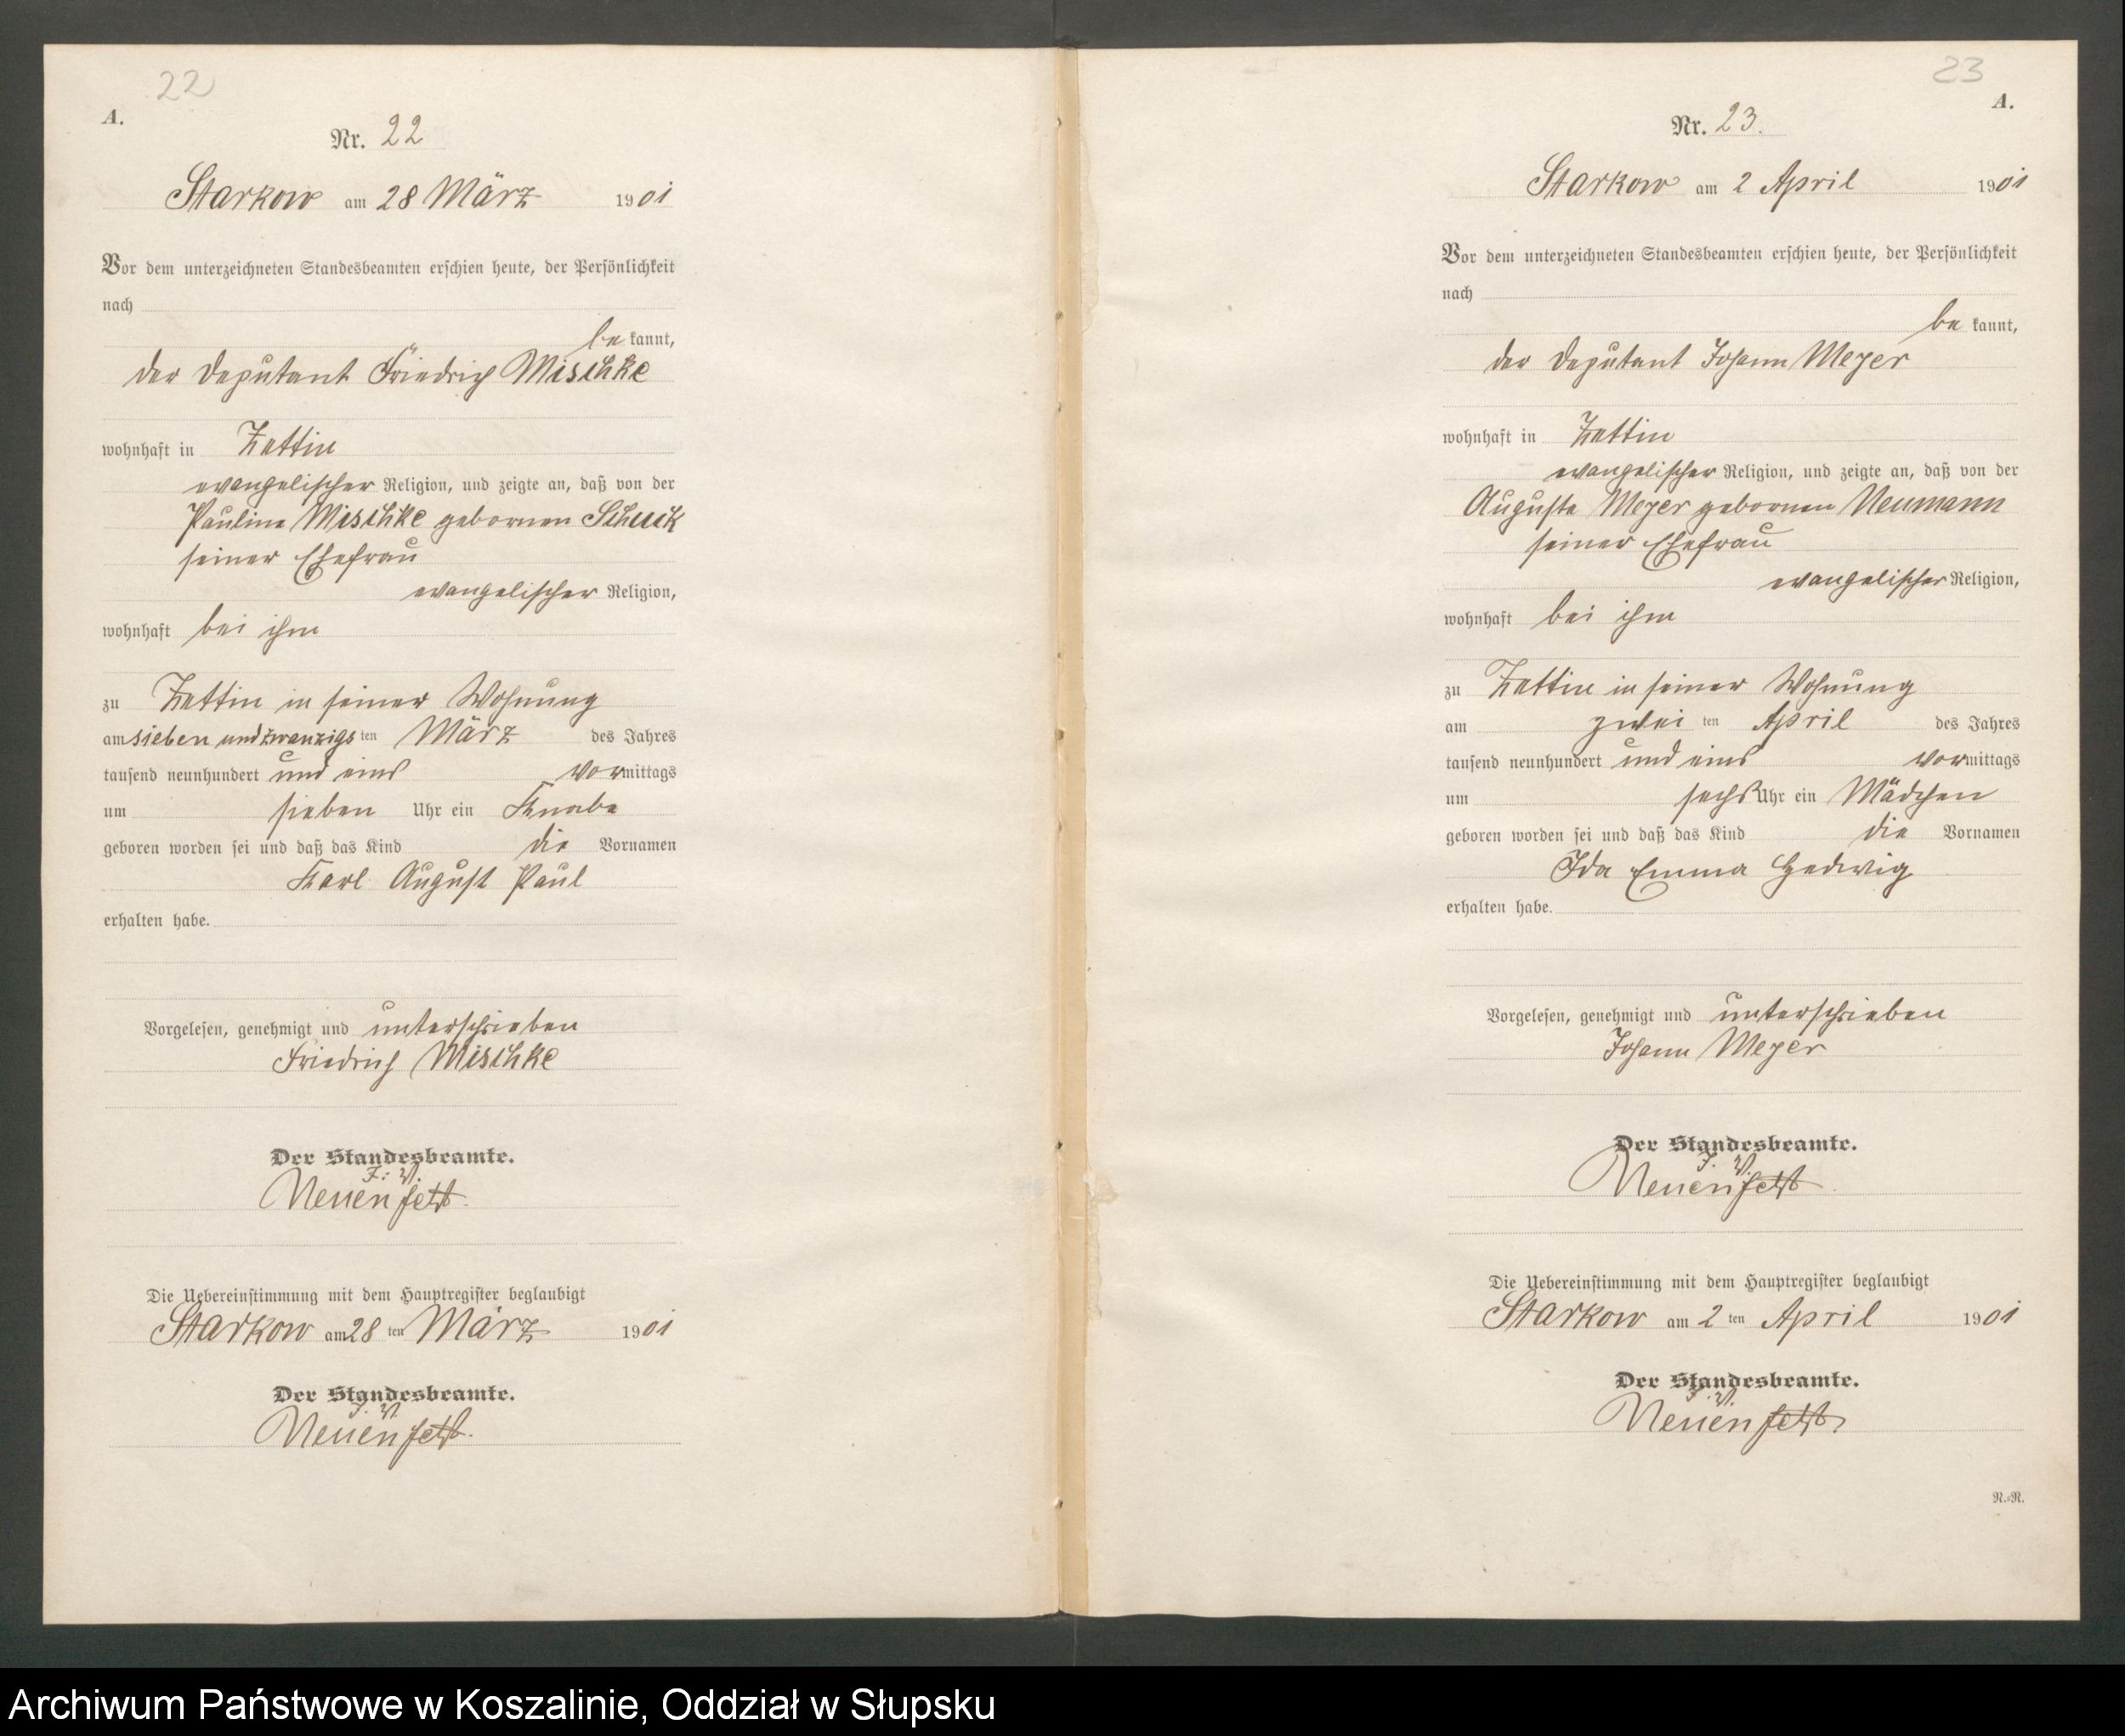 22
A.
Nr. 22
Starkow am 28 März 1901
Vor dem unterzeichneten Standesbeamten erschien heute, der Persönlichkeit
nach
be kannt,
der Deputant Friedrich Mischke
wohnhaft in Zettin
evangelischer Religion, und zeigte an, daß von der
Pauline Mischke gebornen
seiner Ehefrau
evangelischer Religion,
wohnhaft bei ihm
zu Zettin in seiner Wohnung
am sieben und zwanzigs ten März des Jahres
tausend neunhundert und eins vormittags
um sieben Uhr ein Knabe
geboren worden sei und daß das Kind die Vornamen
Karl August Paul
erhalten habe.
Vorgelesen, genehmigt und unterschrieben
Friedrich Mischke
Der Standesbeamte.
J. V.
Die Uebereinstimmung mit dem Hauptregister beglaubigt
Starkow am 28 ten März 1901
Der Standesbeamte.
J. V.
23
A.
Nr. 23.
Starkow am 2 April 1901
Vor dem unterzeichneten Standesbeamten erschien heute, der Persönlichkeit
nach
be kannt,
der Deputant Johann Meyer
wohnhaft in Zettin
evangelischer Religion, und zeigte an, daß von der
Auguste Meyer gebornen Neumann
seiner Ehefrau
evangelischer Religion,
wohnhaft bei ihm
zu Zettin in seiner Wohnung
am zwei ten April des Jahres
tausend neunhundert und eins vormittags
um sechs Uhr ein Mädchen
geboren worden sei und daß das Kind die Vornamen
Ida Emma Hedwig
erhalten habe.
Vorgelesen, genehmigt und unterschrieben
Johann Meyer
Der Standesbeamte.
J. V.
Die Uebereinstimmung mit dem Hauptregister beglaubigt
Starkow am 2 ten April 1901
Der Standesbeamte.
J. V.
R.=R.
Archiwum Państwowe w Koszalinie, Oddział w Słupsku